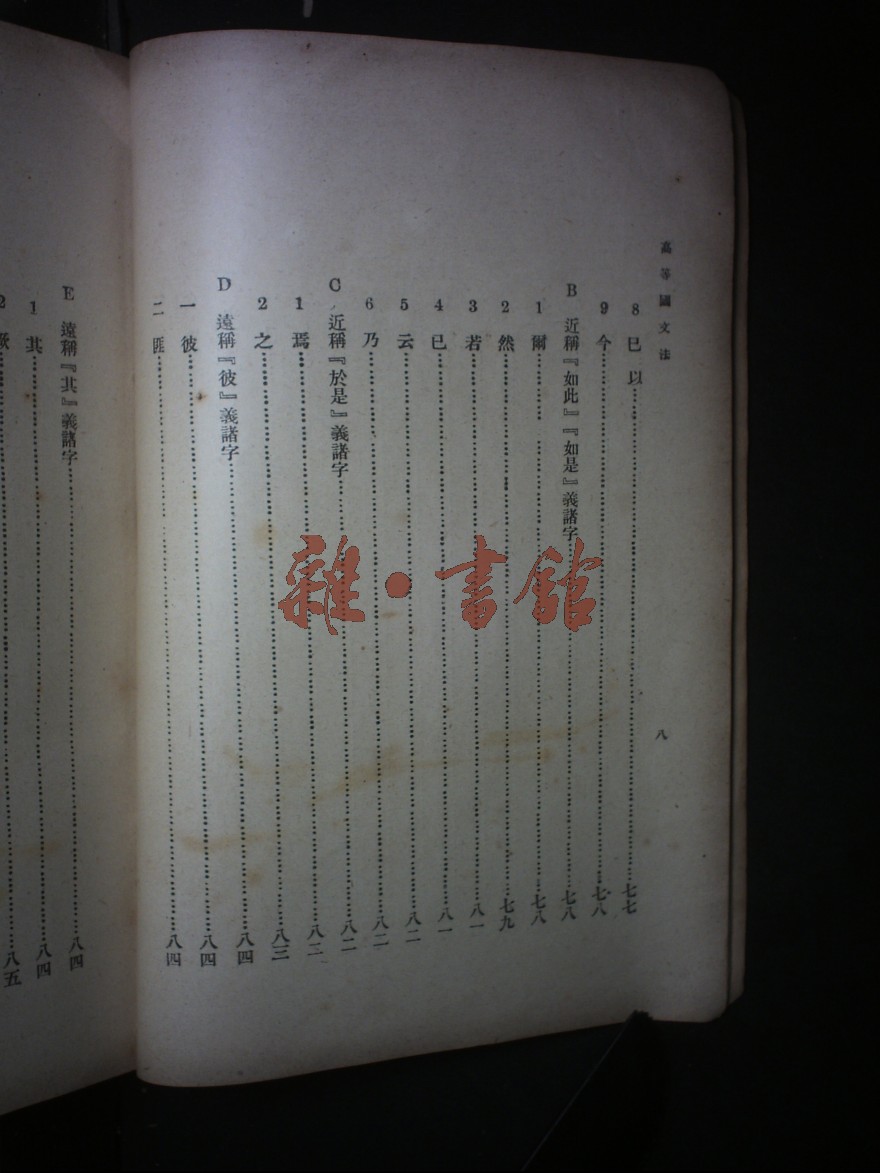 高等國文法
八
8 已 以……七七
9 今……七八
B 近稱『如此』『如是』義諸字……七八
1 爾……七八
2 然……七九
3 若……八一
4 已……八一
5 云……八二
6 乃……八二
C 近稱『於是』義諸字……八二
1 焉……八二
2 之……八三
D 遠稱『彼』義諸字……八四
一 彼……八四
二 匪……八四
E 遠稱『其』義諸字……八四
1 其……八四
2 厥……八五
雜·書館